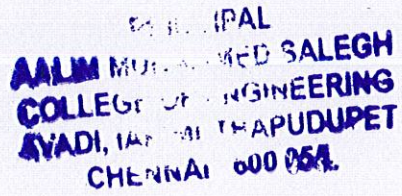 PAL
AALIM MU MED SALEGH
COLLEGE OF ENGINEERING
AVADI, IAF THAPUDUPET
CHENNAI 600 054.